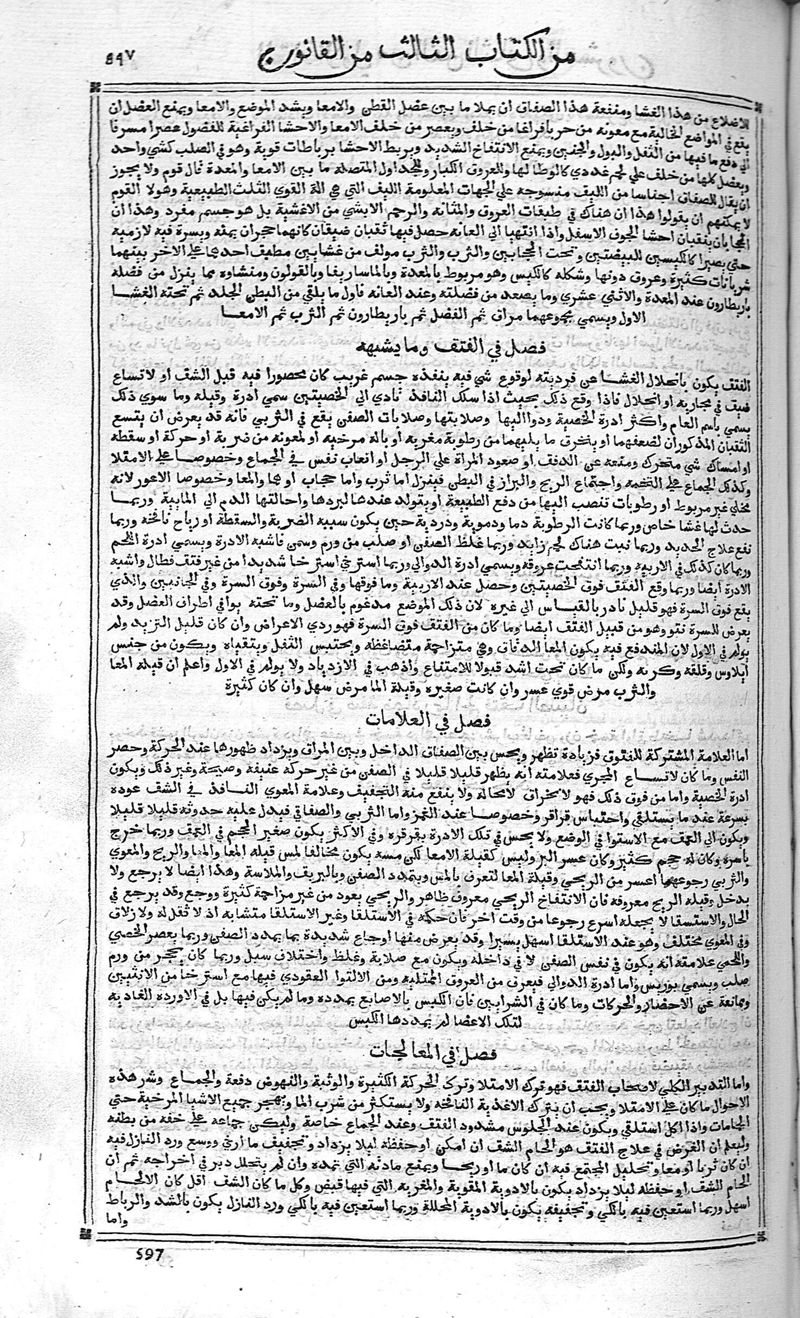 من الكتاب الثالث من القانون
٥٩٧
للاضلاع من هذا الغشا ومنفعة هذا الصفاق ان يملا ما بين عضل القطن والامعا ويشد الموضع والامعا ويمنع العضل ان
يقع في المواضع الخالية مع معونه من خلف ويعصر من خلف الامعا والاحشا الفراغية للفضول عصرا مسرفا
الي دفع ما فيها من الثفل والبول والجنين ويمنع الانتفاخ الشديد ويربط الاحشا برباطات قوية وهو في الصلب كشي واحد
ويعضل كلها من خلف علي لحم غددي كالوطا لها وللعروق الكبار وللجداول المتصلة ما بين الامعا والمعدة قال قوم ولا يجوز
ان يقال للصفاق اجناسا من الليف منسوجه علي الجهات المعلومة الليف التي هي الة القوي الثلث الطبيعية وهولا القوم
لا يمكنهم ان يقولوا هذا ان هناك في طبقات العروق والمثانه والرحم لا بشي من الاغشية بل هو جسم مفرد وهذا ان
الحجابان ينفيان احشا الجوف الاسفل واذا انتهيا الي العانه حصل فيها ثقبان ضيقان كانهما حجران يمنه ويسرة فيه لازميه
حتي يصيرا كالكيسين للبيضتين وتحت الحجابين والثرب والثرب مولف من غشابين مطيف احدهما علي الاخر بينهما
شريانات كثيرة وعروق دونها وشكله كالكيس وهو مربوط بالمعدة وبالماساريقا وبالقولون ومنشاوه مما ينزل من فضلة
باريطارون عند المعدة والاثني عشري وما يصعد من فضلته وعند العانه فاول ما يلقي من البطن الجلد ثم تحته الغشا
الاول ويسمي مجموعهما مراق ثم العضل ثم باريطارون ثم الثرب ثم الامعا
فصل في الفتق وما يشبهه
الفتق يكون بانحلال الغشا عن فرديته لوقوع شي فيه ينفذه جسم غريب كان محصورا فيه قبل الشق او لاتساع
ضيق في مجاريه او انحلال فاذا وقع ذلك بحيث اذا سلك النافذ تادي الي الخصيتين سمي ادرة وقيلة وما سوي ذلك
يسمي باسم العام واكثر ادرة الخصية ودواليها وصلابتها وصلابات الصفن يقع في الثربي فانه قد يعرض ان يتسع
الثقبان المذكوران لضعفهما او ينخرق ما يليهما من رطوبة مغرية او بالة مرخيه او لمعونه من ضربة او حركة او سقطة
او امساك شي متحرك ومنعه عن الدفق او صعود المراة علي الرجل او اتعاب نفس في الجماع وخصوصا علي الامتلا
وكذلك الجماع علي التخمة واجتماع الريح والبراز في البطن فينزل اما ثرب واما حجاب او هما والمعا وخصوصا الاعور لانه
مخلي غير مربوط او رطوبات تنصب اليها من دفع الطبيعة او يتولد عندها لبردها واحالتها الدم الي المايية وربما
حدث لها غشا خاص وربما كانت الرطوبة دما ودموية ودردية حين يكون سببه الضربة والسقطة او رياح نافخة وربما
نفع علاج الحديد وربما نبت هناك لحم زايد وربما غلظ الصفن او صلب من ورم وسمن فاشبه الادرة ويسمي ادرة اللحم
وربما كان كذلك في الاربية وربما انتفخت عروقه ويسمي ادرة الدوالي وربما استرخي استرخا شديدا من غير فتق فطال واشبه
الادرة ايضا وربما وقع الفتق فوق الخصيتين وحصل عند الاربية وما فوقها وفي السرة وفوق السرة وفي الجانبين والذي
يقع فوق السرة فهو قليل نادر بالقياس الي غيره لان ذلك الموضع مدعوم بالعضل وما تحته يوافي اطراف العضل وقد
يعرض للسرة نتو وهو من قبيل الفتق ايضا وما كان من الفتق فوق السرة فهو ردي الاعراض وان كان قليل التزيد ولم
يولم في الاول لان المندفع فيه يكون المعا الدقاق وهي متزاحمة متضاغطه ويحتبس الثفل ويتقياه ويكون من جنس
ايلاوس وقلقه وكربه ولكن ما كان تحت اشد قبولا للاتساع واذهب في الازدياد ولا يولم في الاول واعلم ان قيله المعا
والثرب مرض قوي عسر وان كانت صغيره وقيلة الما مرض سهل وان كان كثيرة
فصل في العلامات
اما العلامة المشتركة للفتوق فزيادة تظهر ويحس بين الصفاق الداخل وبين المراق ويزداد ظهورها عند الحركة وحصر
النفس وما كان لاتساع المجري فعلامته انه يظهر قليلا قليلا في الصفن من غير حركة عنيفة وصيحة وغير ذلك ويكون
ادرة الخصية واما من فوق ذلك فهو لانخراق لا محالة ولا ينفع منه التخفيف وعلامة المعوي النافذ في الشق عوده
بسرعة عند ما يستلقي واحتباس قراقر وخصوصا عند الغمز واما الثربي والصفاقي فيدل عليه حدوثه قليلا قليلا
ويكون الي العمق مع الاستوا في الوضع ولا يحس في تلك الادرة بقرقرة وفي الاكثر يكون صغير الحجم في العمق وربما خرج
باسره وكان له حجم كثير وكان عسر البرو وليس كقيلة الامعا لكن مسه يكون مخالفا لمس قيله المعا والما والريح والمعوي
والثربي رجوعهما اعسر من الريحي وقيلة الما لتعرف بالمس ويتمدد الصفن وبالبريق والملاسة وهذا ايضا لا يرجع ولا
يدخل وقيله الريح معروفه فان الانتفاخ الريحي معروف ظاهر والريحي يعود من غير مزاحمة كثيرة ووجع وقد يرجع في
الحال والاستسقا لا يجعله اسرع رجوعا من وقت اخر فان حكمه في الاستلقا وغير الاستلقا متشابه اذ لا ثقل له ولا زلاق
وفي المعوي مختلف وهو عند الاستلقا اسهل يسيرا وقد يعرض منها اوجاع شديدة بما يمدد الصفن وربما يعصر الخصي
واللحمي علامته انه يكون في نفس الصفن لا في داخله ويكون مع صلابة وغلظ واختلاف سيل وربما كان يتحجر من ورم
صلب ويسمي بوريس واما ادرة الدوالي فيعرف من العروق الممتلية ومن الالتوا العقودي فيها مع استرخا من الانثيين
وممانعة عن الاحضار والحركات وما كان في الشرايين فان الكبس بالاصابع يمدده وما لم يكن فيها بل في الاورده الغادية
لتلك الاعضا لم يمددها الكبس
فصل في المعالجات
واما التدبير الكلي لاصحاب الفتق فهو ترك الامتلا وترك الحركة الكثيرة والوثبة والنهوض دفعة والجماع وشر هذه
الاحوال ما كان علي الامتلا ويجب ان يترك الاغذية النافخه ولا يستكثر من شرب الما ويهجر جميع الاشيا المرخية حتي
الحمامات واذا اكل استلقي ويكون عند الجلوس مشدود الفتق وعند الجماع خاصة وليكن جماعه علي خفه من بطنه
وليعلم ان الغرض في علاج الفتق هو الحام الشق ان امكن او حفظه ليلا يزداد وتجفيف ما ارخي ووسع ورد النازل فيه
ان كان ثربا او معا وتحليل المجتمع فيه ان كان ما او ريحا ويمنع مادته التي تمده وان لم يتحلل دبر في اخراجه ثم ان
الحام الشق او حفظه ليلا يزداد يكون بالادوية المقوية والمغرية التي فيها قبض وكل ما كان الشق اقل كان الالحام
اسهل وربما استعين فيه بالكي وتجفيفه يكون بالادوية المحللة وربما استعين فيه بالكي ورد النازل يكون بالشد والرباط
واما
597